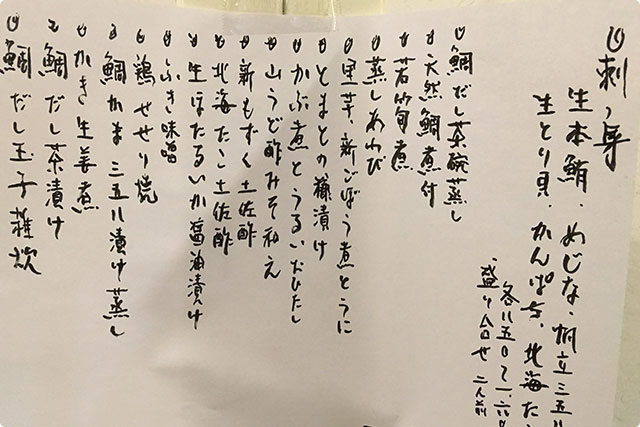 刺し身
生本鮪、めじな、帆立三五
生とり貝、かんぱち、北海た
盛り合せ 二人前
鯛だし茶碗蒸し
天然鯛煮付
若筍煮
蒸しあわび
里芋、新ごぼう煮とうに
とまとの糠漬け
かぶ煮とうるいおひたし
山うど酢みそ和え
新もずく土佐酢
北海たこ土佐酢
生ほたるいか醤油漬け
ふき味噌
鶏せせり焼
鯛かま三五八漬け蒸し
かき生姜煮
鯛だし茶漬け
鯛だし玉子雑炊